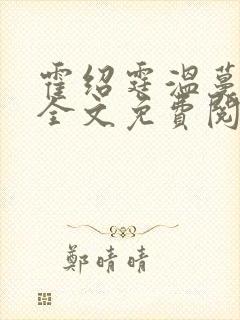 霍绍霆温蔓
全文免費閱
鄭晴晴